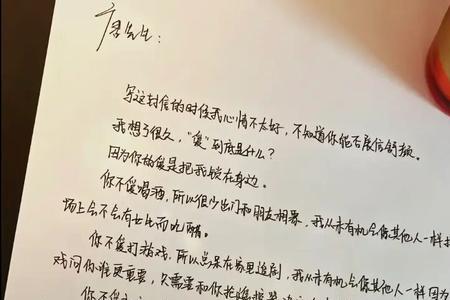 先生：
写这封信的时候我心情不太好，不知道你能否展信舒颜。
我想了很久，“爱”到底是什么？
因为你的爱是把我拴在身边。
你不爱喝酒，所以很少出门和朋友相聚，我从未有机会像其他人一样
场上会不会有女生而吃醋。
你不爱打游戏，所以总呆在家里追剧，我从未有机会像其他人一样因为
戏问你谁更重要，只需要和你抢
你不爱